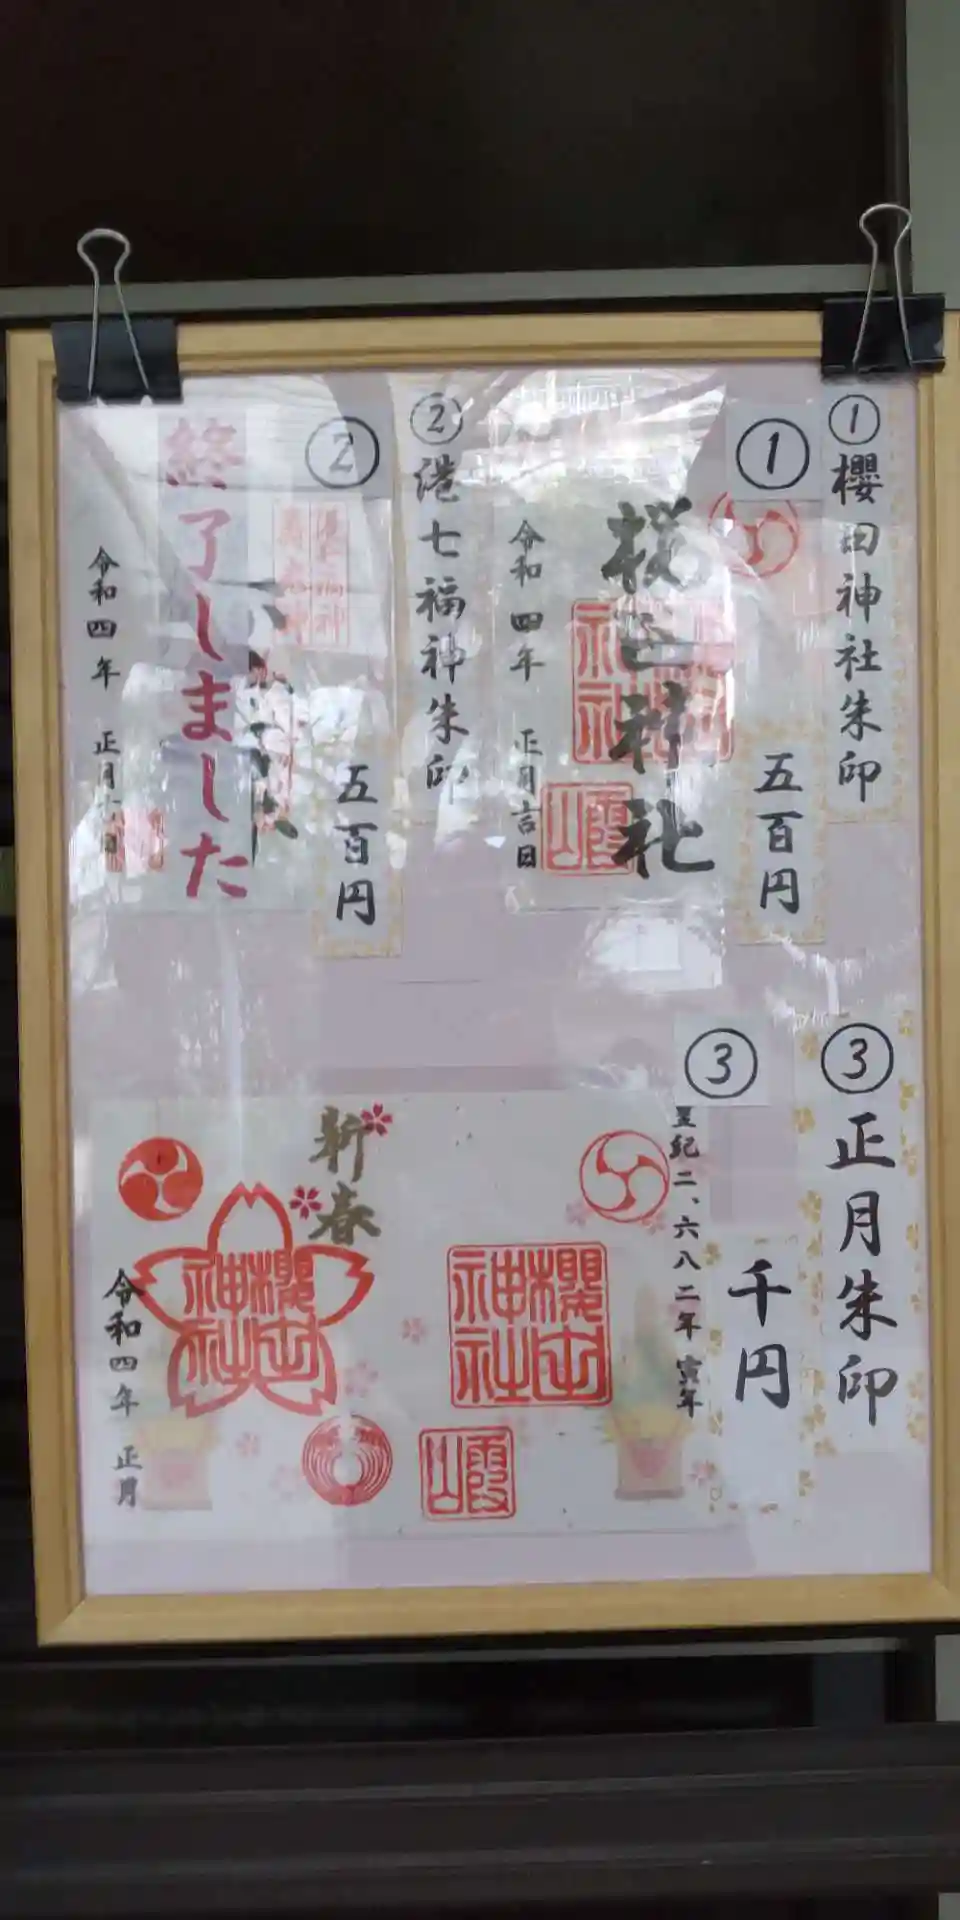 ①櫻田神社朱印
①
五百円
桜田神社
櫻田神社
霞山
令和四年 正月吉日
②港七福神朱印
②
五百円
終了しました
令和四年 正月
③正月朱印
③
千円
皇紀二、六八二年 寅年
櫻田神社
霞山
新春
櫻田神社
令和四年 正月